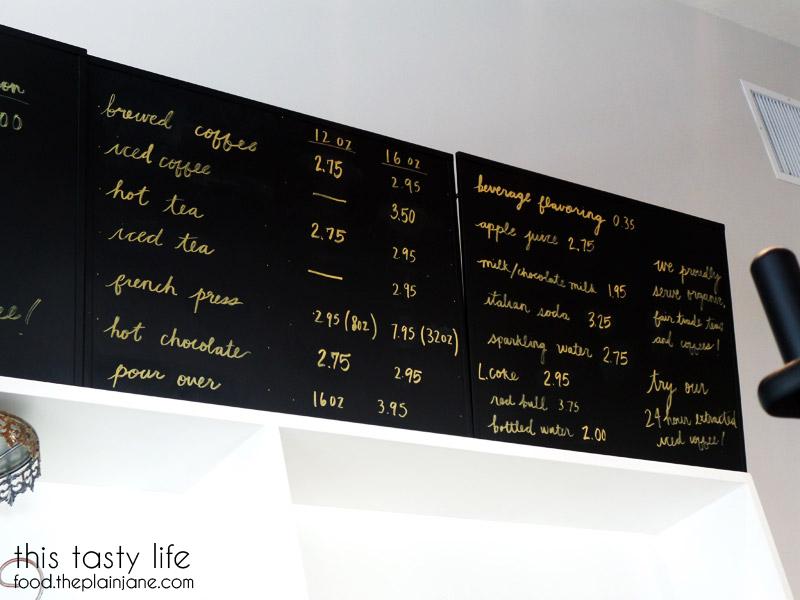 on
00
ee!
12 oz 16 oz
brewed coffee 2.75 2.95
iced coffee — 3.50
hot tea 2.75 2.95
iced tea — 2.95
french press 2.95 (8oz) 7.95 (32oz)
hot chocolate 2.75 2.95
pour over 16oz 3.95
beverage flavoring 0.35
apple juice 2.75
milk/chocolate milk 1.95
italian soda 3.25
sparkling water 2.75
L.coke 2.95
red bull 3.75
bottled water 2.00
we proudly
serve organic,
fair trade teas
and coffees!
try our
24 hour extracted
iced coffee!
this tasty life
food.theplainjane.com